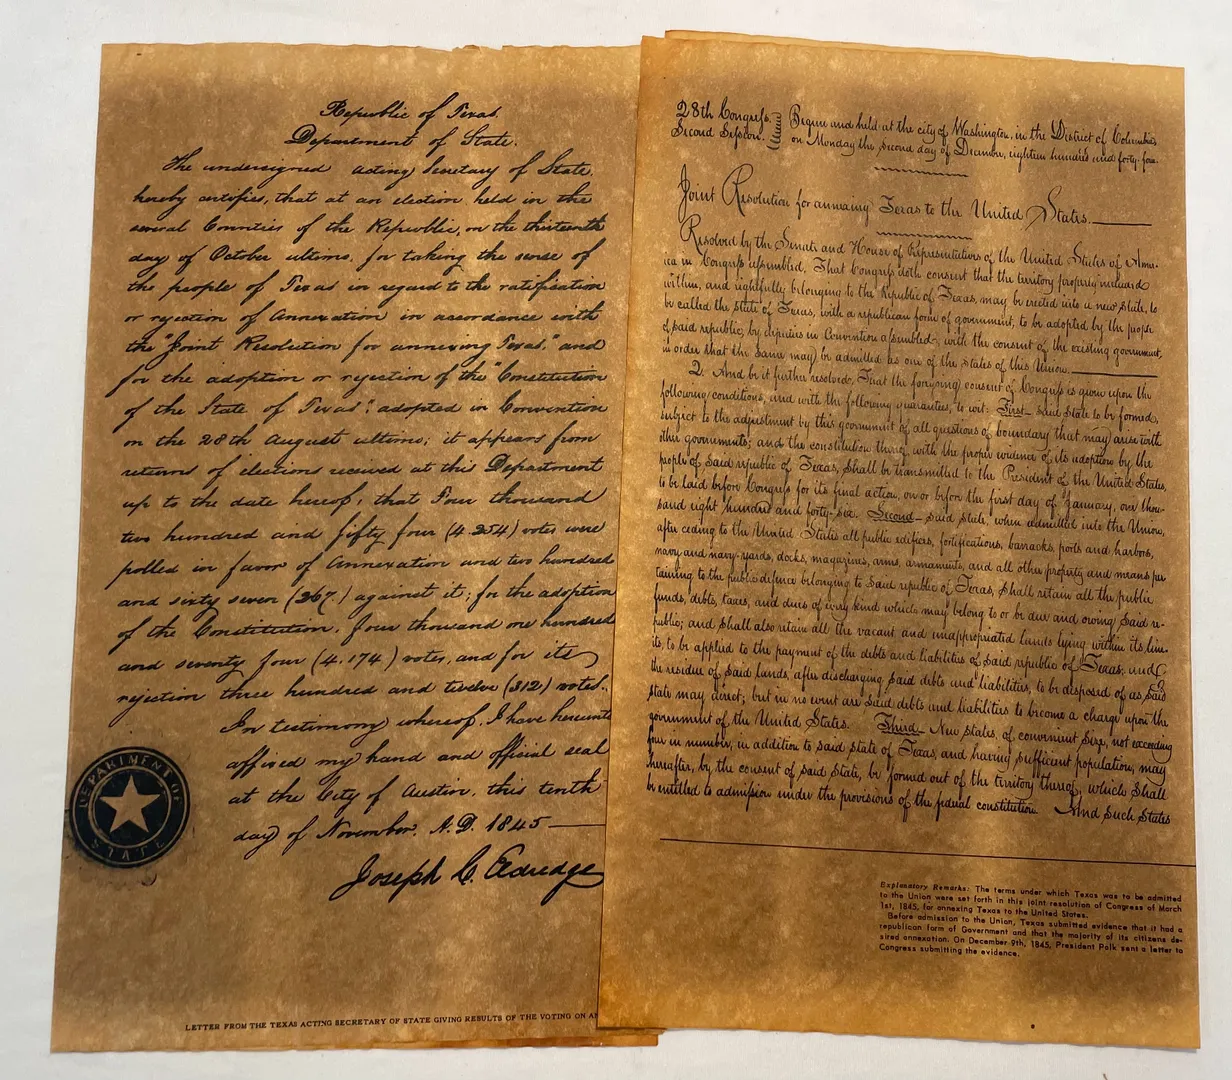 Republic of Texas.
Department of State.
The undersigned acting Secretary of State,
hereby certifies, that at an election held in the
several Counties of the Republic, on the thirteenth
day of October ultimo, for taking the sense of
the people of Texas in regard to the ratification
or rejection of Annexation in accordance with
the "Joint Resolution for annexing Texas," and
for the adoption or rejection of the "Constitution
of the State of Texas", adopted in Convention
on the 28th August ultimo; it appears from
returns of elections received at this Department
up to the date hereof, that Four thousand
two hundred and fifty four (4.254) votes were
polled in favor of Annexation and two hundred
and sixty seven (267.) against it; for the adoption
of the Constitution, four thousand one hundred
and seventy four (4.174) votes, and for its
rejection three hundred and twelve (312) votes.
In testimony whereof, I have hereunto
affixed my hand and official seal
at the City of Austin, this tenth
day of November, A.D. 1845
Joseph C. Eldredge
DEPARTMENT OF
STATE
LETTER FROM THE TEXAS ACTING SECRETARY OF STATE GIVING RESULTS OF THE VOTING ON
28th Congress, Begun and held at the city of Washington, in the District of Columbia
Second Session. on Monday the second day of December, eighteen hundred and forty-four.
Joint Resolution for annexing Texas to the United States.
Resolved by the Senate and House of Representatives of the United States of Amer-
ica in Congress assembled, That Congress doth consent that the territory properly included
within, and rightfully belonging to the Republic of Texas, may be erected into a new state, to
be called the state of Texas, with a republican form of government, to be adopted by the people
of said republic, by deputies in Convention assembled, with the consent of the existing government,
in order that the same may be admitted as one of the states of this Union.
2. And be it further resolved, That the foregoing consent of Congress is given upon the
following conditions, and with the following guaranties, to wit: First - said State to be formed,
subject to the adjustment by this government of all questions of boundary that may arise with
other governments; and the constitution thereof, with the proper evidence of its adoption by the
people of said republic of Texas, shall be transmitted to the President of the United States,
to be laid before Congress for its final action, on or before the first day of January, one thou-
sand eight hundred and forty-six. Second - said state, when admitted into the Union,
after ceding to the United States all public edifices, fortifications, barracks, ports and harbors,
navy and navy-yards, docks, magazines, arms, armaments, and all other property and means per-
taining to the public defence belonging to said republic of Texas, shall retain all the public
funds, debts, taxes, and dues of every kind which may belong to or be due and owing said re-
public; and shall also retain all the vacant and unappropriated lands lying within its lim-
its, to be applied to the payment of the debts and liabilities of said republic of Texas; and
the residue of said lands, after discharging said debts and liabilities, to be disposed of as said
state may direct; but in no event are said debts and liabilities to become a charge upon the
government of the United States. Third - New states, of convenient size, not exceeding
four in number, in addition to said state of Texas, and having sufficient population, may
hereafter, by the consent of said State, be formed out of the territory thereof, which shall
be entitled to admission under the provisions of the federal constitution. And such States
Explanatory Remarks: The terms under which Texas was to be admitted
to the Union were set forth in this joint resolution of Congress of March
1st, 1845, for annexing Texas to the United States.
Before admission to the Union, Texas submitted evidence that it had a
republican form of Government and that the majority of its citizens de-
sired annexation. On December 9th, 1845, President Polk sent a letter to
Congress submitting the evidence.